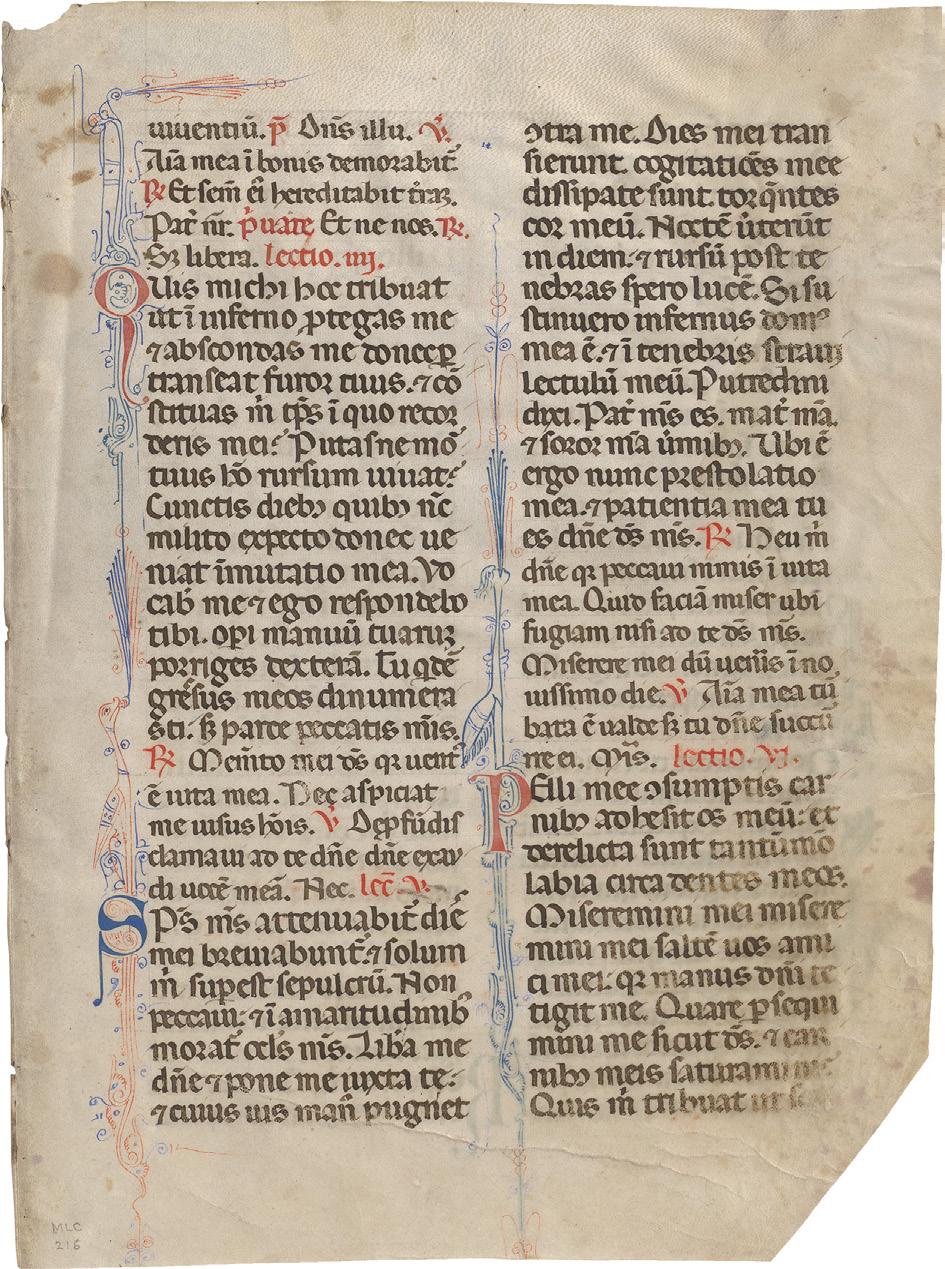 uiuentiū. p̄ Dn̄s illu. v̄.
Aīa mea ī bonis demorabit̄.
R̄ Et sem̄ ei͡ hereditabit t̄raꝫ.
Pat̄ nr̄. p̍uate Et ne nos. R̄.
Sꝫ libera. lectio. iiij.
Quis michi hoc tribuat
ut ī inferno ꝓtegas me
⁊ abscondas me donec ꝑ
transeat furor tuus. ⁊ cō
stituas m̍ tp̄s ī quo recor
deris mei? Putasne mō
tuus hō rursum uiuat?
Cunctis diebꝫ quibꝫ nc̄
milito expecto donec ue
niat īmutatio mea. Vo
cab̍ me ⁊ ego respondebo
tibi. oꝑi manuū tuaruꝫ
porriges dexterā. Tu qͥdē
gressus meos dinumera
sti. sꝫ parce peccatis m̄is.
R̄ Mem̄to mei d̄s qꝛ uent᷒
ē uita mea. Nec aspiciat
me uisus hoīs. v̄ De ꝓfūdis
clamaui ad te dn̄e dn̄e exau
di uocē meā. Nec. lec̄. v.
Sp̄s m̄s attenuabit̄ diē
mei breuiabunt̄ ⁊ solum
m̍ suꝑest sepulcrū. Non
peccaui: ⁊ ī amaritudinibꝫ
morat̄ ocl̄s m̄s. Lib̄a me
dn̄e ⁊ pone me iuxta te:
⁊ cuius uis man᷒ pugnet
ꝯtra me. Dies mei tran
sierunt. cogitatiōes mee
dissipate sunt. torq̄ntes
cor meū. Noctē ūterūt
in diem. ⁊ rursū post te
nebras spero lucē. Si su
stinuero infernus dom᷒
mea ē. ⁊ ī tenebris straui
lectulū meū. Putredini
dixi. Pat̄ m̄s es. mat̄ m̄a.
⁊ soror m̄a ūmibꝫ. Ubi ē
ergo nunc prestolatio
mea. ⁊ patientia mea tu
es dn̄e d̄s m̄s. R̄ Heu m̍
dn̄e qꝛ peccaui nimis ī uita
mea. Quid faciā miser ubi
fugiam nisi ad te d̄s m̄s.
Miserere mei dū uen̄is ī no
uissimo die. v̄ Aīa mea tū
bata ē ualde sꝫ tu dn̄e succū
re ei. Mīs. lectio. vi.
Pelli mee ꝯsumptis car
nibꝫ adhesit os meū: et
derelicta sunt tantūmō
labia circa dentes meos.
Miseremini mei misere
mini mei saltē uos ami
ci mei: qꝛ manus dn̄i te
tigit me. Quare ꝑsequi
mini me sicut d̄s. ⁊ car
nibꝫ meis saturamini
Quis m̍ tribuat ut
MLC
216